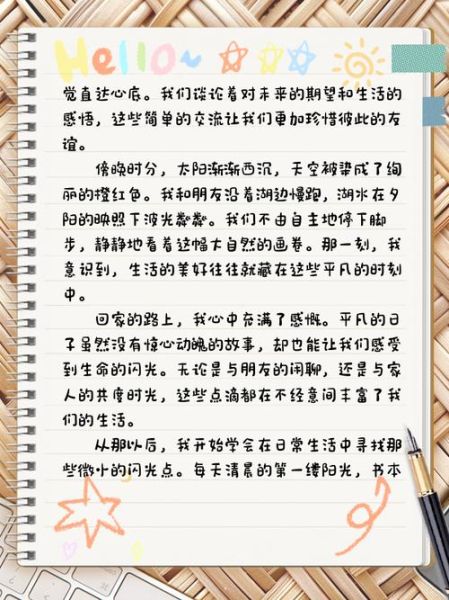 Hello~
觉直达心底。我们谈论着对未来的期望和生活的
感悟，这些简单的交流让我们更加珍惜彼此的友
谊。
傍晚时分，太阳渐渐西沉，天空被染成了绚
丽的橙红色。我和朋友沿着湖边慢跑，湖水在夕
阳的映照下波光粼粼。我们不由自主地停下脚
步，静静地看着这幅大自然的画卷。那一刻，我
意识到，生活的美好往往就藏在这些平凡的时刻
中。
回家的路上，我心中充满了感慨。平凡的日
子虽然没有惊心动魄的故事，却也能让我们感受
到生命的闪光。无论是与朋友的闲聊，还是与家
人的共度时光，这些点滴都在不经意间丰富了我
们的生活。
从那以后，我开始学会在日常生活中寻找那
些微小的闪光点。每天清晨的第一缕阳光，书本